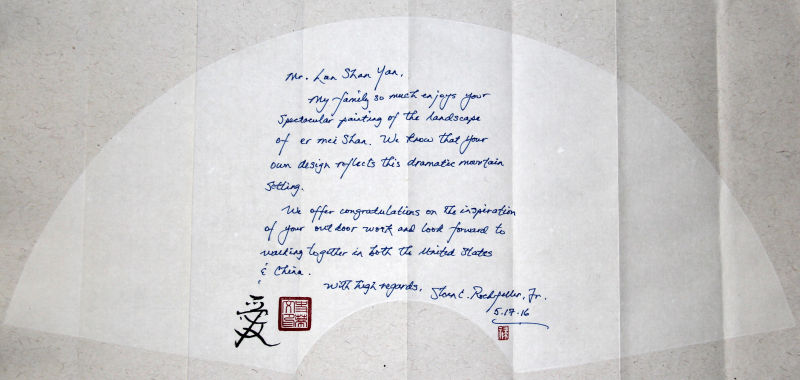 Mr. Lan Shan Yan,
My family so much enjoys your
spectacular painting of the landscape
of er mei Shan. We know that your
own design reflects this dramatic mountain
setting.
We offer congratulations on the inspiration
of your outdoor work and look forward to
working together in both the United States
& China.
With high regards,
C. Rockefeller, Jr.
5.17.16
愛